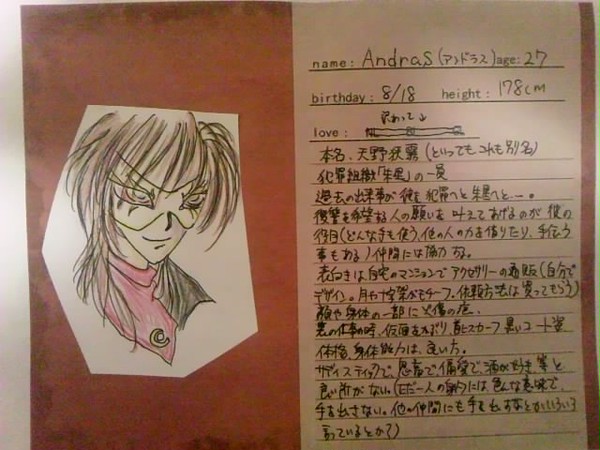 name: Andras (アンドラス) age: 27
birthday: 8/18 height: 178cm
変わって↓
love:
本名、天野狭霧 (といってもこれも別名)
犯罪組織「朱黒」の一員
過去の出来事が彼を犯罪へと朱黒へと…。
復讐を希望する人の願いを叶えてあげるのが彼の
役目(どんな手も使う、他の人の力を借りたり、手伝う
事もある)仲間には協力する。
表向きは自宅のマンションでアクセサリーの通販(自分で
デザイン。月や十字架がモチーフ。依頼お客は買ってもらう)
顔や身体の一部に火傷の痕
裏の仕事の時、仮面をかぶり、首にスカーフ黒いコート姿
体格、身体能力は、良い方。
サディスティックで、悪どくて偏愛で、酒が好き、等と
良い所がない。(ただ一人の には色んな意味で、
手を出さない。他の仲間にも手を出すなとかいろいろ
言っているとか?)